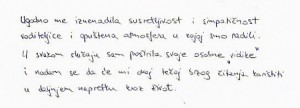 Ugodno me iznenadila susretljivost i simpatičnost
voditeljice i opuštena atmosfera u kojoj smo radili.
U svakom slučaju sam proširila svoje osobne "vidike"
i nadam se da će mi ovaj tečaj brzog čitanja koristiti
u daljnjem napretku kroz život.